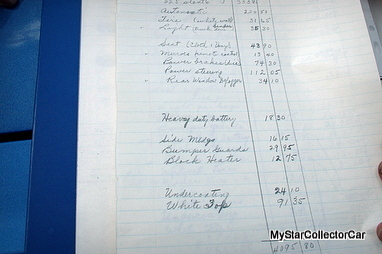 Autonost 22 50
Tire (white wall) 31 65
Light 38 30
Seat (Cloth & Vinyl) 48 90
Mirror remote control 13 60
Power brakes disc 74 30
Power steering 112 05
Rear Window Defogger 34 10
Heavy duty battery 18 30
Side Mldgs 16 15
Bumper Guards 29 95
Block Heater 12 75
Undercoating 24 10
White Top 91 35
4095 80
MyStarCollectorCar.com